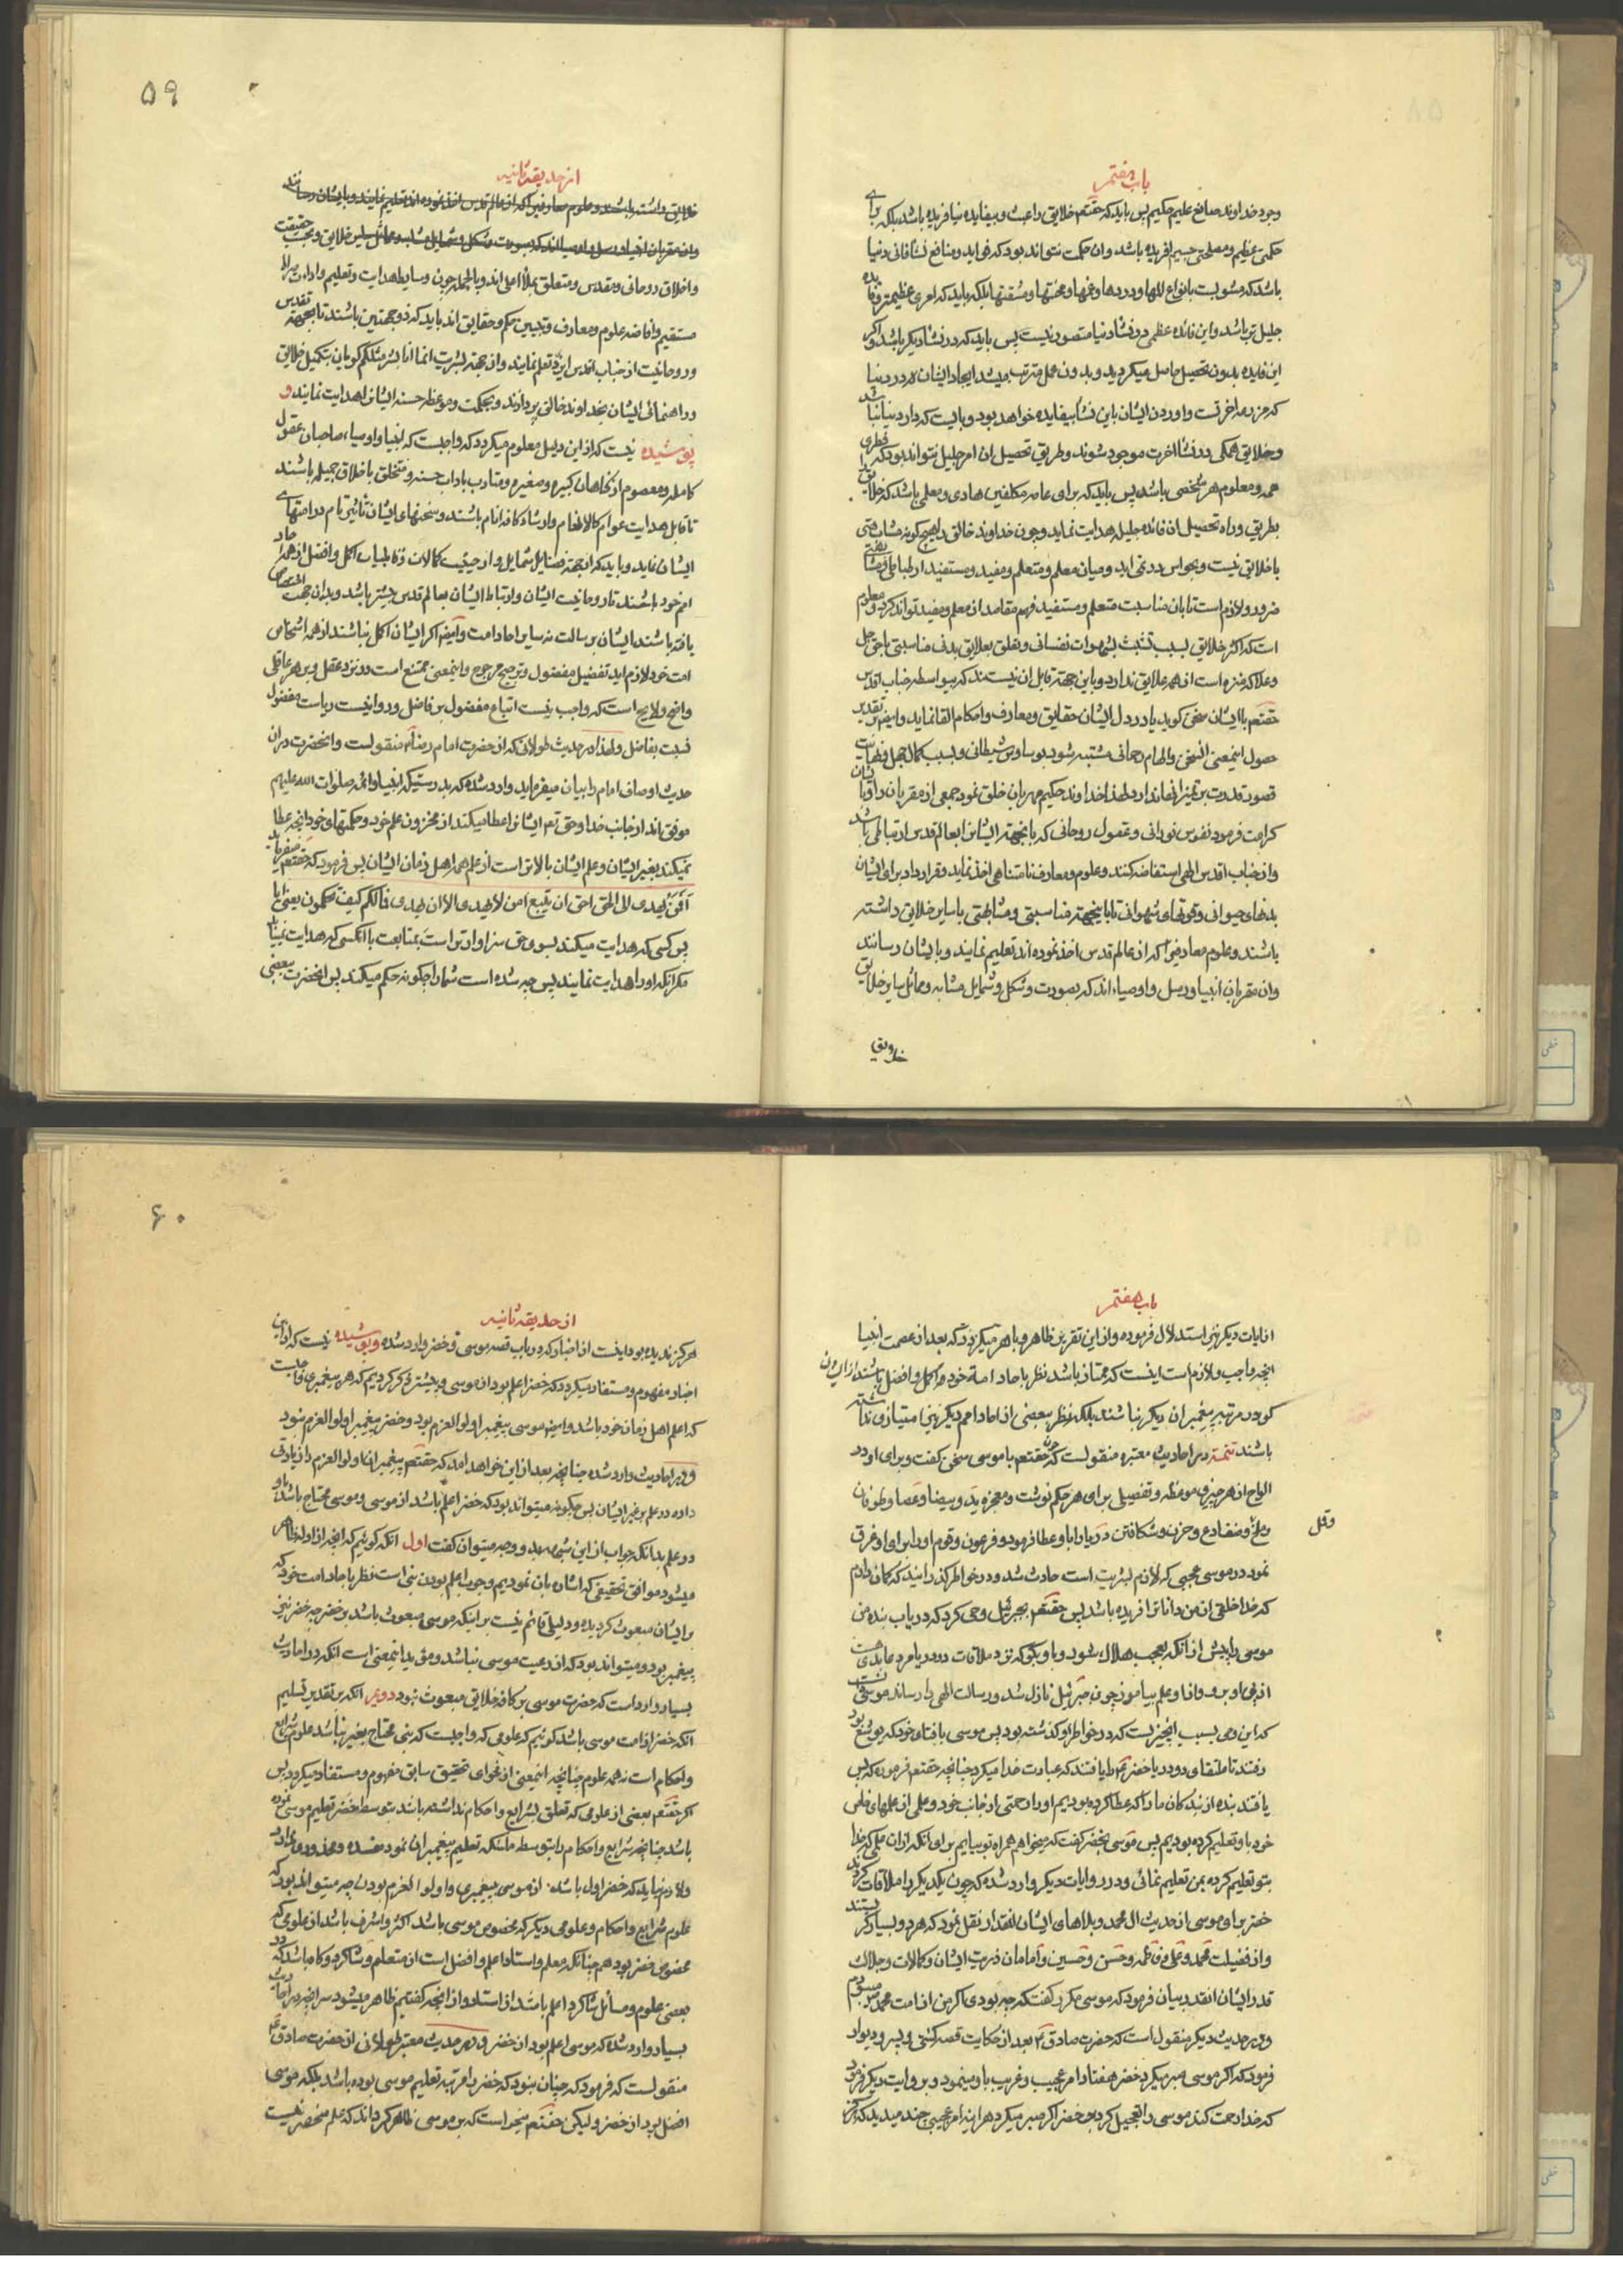 باب هفتم
وجود خداوند صانع علیم حکیم پس باید که حقتعم خلایق را عبث و بیفایده نیافریده باشد بلکه برای
حکمتی عظیم و مصلحتی جسیم افریده باشد و ان حکمت نتواند بود که فواید و منافع نشأ فانی دنیا
باشد که مشوبست بانواع المها و دردها و غمها و محنتها و مشقتها بلکه باید که امری عظیمتر و فایده
جلیل تر باشد و این فائده عظمی در نشأ دنیا متصور نیست پس باید که در نشأ دیگر باشد و اگر
این فایده بدون تحصیل حاصل میگردید و بدون عمل مترتب میشد ایجاد ایشان در دنیا
که مزرعه اخرتست و اوردن ایشان باین نشأ بیفایده خواهد بود و بایست که دار دنیا نباشد
و خلایق همگی در نشأ اخرت موجود شوند و طریق تحصیل ان امر جلیل نتواند بود که فطری
همه و معلوم هر شخصی باشد پس باید که برای عامه مکلفین هادی و معلمی باشد که خلایق را
بطریق و راه تحصیل ان فائده جلیله هدایت نماید و چون خداوند خالق را هیچ گونه مشابهتی
با خلایق نیست و بحواس در نمی اید و میان معلم و متعلم و مفید و مستفید ارتباطی و مشابهتی
ضرور و لازم است تا بان مناسبت متعلم و مستفید فهم مقاصد از معلم و مفید تواند کرد و معلوم
است که اکثر خلایق بسبب تشبث بشهوات نفسانی و تعلق بعلایق بدنی مناسبتی با حق جل
و علا که منزه است از همه علایق ندارد و باین جهة قابل ان نیستند که بیواسطه جناب اقدس
حقتعم با ایشان سخن گوید یا در دل ایشان حقایق و معارف و احکام القا نماید و ایضا بر تقدیر
حصول اینمعنی السخن و الهام رحمانی مشتبه شود بوساوس شیطانی و بسبب کمال جهل و نهایت
قصور قدرت بر تمیز انها ندارد لهذا خداوند حکیم مهربان خلق نمود جمعی از مقربان را و بایشان
کرامت فرمود نفوس نورانی و عقول روحانی که بانجهة ایشانرا بعالم قدس ارتباطی باشد
و از جناب اقدس الهی استفاضه کنند و علوم و معارف نامتناهی اخذ نماید و قرار داد برای ایشان
بدنهای حیوانی و قوتهای شهوانی تا باینجهة مناسبتی و مشابهتی با سایر خلایق داشته
باشند و علوم معارفیرا که از عالم قدس اخذ نموده اند تعلیم نمایند و بایشان رسانند
و ان مقربان انبیا و رسل و اوصیاء اند که بصورت و شکل و شمایل مشابه و مماثل سایر خلایق
خلایق
۵۹
از حدیقه ثانیه
خلایق داشته باشند و علوم معارفیرا که از عالم قدس اخذ نموده اند تعلیم نمایند و بایشان رسانند
و ان مقربان انبیا و رسل و اوصیا اند که بصورت و شکل و شمایل مشابه و مماثل سایر خلایق و بحسب حقیقت
و اخلاق روحانی و مقدس و متعلق بملأ اعلی اند و بالجمله چون وسایط هدایت و تعلیم و اداءت صراط
مستقیم و افاضه علوم و معارف و تبیین حکم و حقایق اند باید که ذو جهتین باشند تا بجهة تقدس
و روحانیت از جناب اقدس ایزد تعلم نمایند و از جهة بشریت انما انا بشر مثلکم گویان بتکمیل خلایق
و راهنمائی ایشان بخداوند خالق پردازند و بحکمت و موعظه حسنه ایشانرا هدایت نمایند و
پوشیده نیست که از این دلیل معلوم میگردد که واجبست که انبیا و اوصیاء صاحبان عقول
کامله و معصوم از گناهان کبیره و صغیره و متادب باداب حسنه و متخلق باخلاق جمیله باشند
تا قابل هدایت عوام کالانعام و ارشاد کافه انام باشند و سخنهای ایشان تاثیری تام در امتهای
ایشان نماید و باید که از جهة فضایل شمایل و از حیثیت کمالات و قابلیات اکمل و افضل از همه احاد
امم خود باشند تا روحانیت ایشان و ارتباط ایشان بعالم قدس بیشتر باشد و بدان جهت اختصاص
یافته باشند ایشان برسالت نه سایر احاد امت و ایضا اگر ایشان اکمل نباشند از همه اشخاص
امت خود لازم اید تفضیل مفضول و ترجیح مرجوح و اینمعنی ممتنع است در نزد عقل و بر هر عاقلی
واضح و لایح است که واجب نیست اتباع مفضول بر فاضل و روا نیست ریاست مفضول
نسبت بفاضل و لهذا در حدیث طولانی که از حضرت امام رضا منقولست و انحضرت دران
حدیث اوصاف امام را بیان میفرماید وارد شده که بدرستیکه انبیا و ائمه صلوات الله علیهم
موفق اند از جانب خدا و حق تعم ایشانرا عطا میکند از مخزون علم خود و حکمتهای خود انچه عطا
نمیکند بغیر ایشان و علم ایشان بالاتر است از علم همه اهل زمان ایشان پس فرمود که حقتعم میفرماید
افمن یهدی الی الحق احق ان یتبع امن لا یهدی الا ان یهدی فمالکم کیف تحکمون یعنی ایا
پس کسی که هدایت میکند بسوی حق سزاوارتر است بمتابعت یا انکسی که هدایت نمییابد
مگر انکه او را هدایت نمایند پس چه شده است شما را چگونه حکم میکنید پس انحضرت ببعضی
باب هفتم
از ایات دیگر نیز استدلال فرموده و از این تقریر ظاهر و باهر میگردد که بعد از عصمت انبیا
انچه واجب و لازم است اینست که ممتاز باشند نظر باحاد امة خود و اکمل و افضل باشند از ایشان
گو در مرتبه پیغمبران دیگر نباشند بلکه نظر ببعضی از احاد امم دیگر نیز امتیازی نداشته
باشند تتمه در احادیث معتبره منقولست که چون حقتعم با موسی سخن گفت و برای او در
الواح از هر چیزی موعظه و تفصیل برای هر حکم نوشت و معجزه ید و بیضا و عصا و طوفان
و ملخ و ضفادع و خون و شکافتن دریا را باو عطا فرمود و فرعون و قوم او را برای او غرق
وقمل
نمود در موسی عجبی که لازم بشریت است حادث شد و در خواطر گذرانید که گمان ندارم
که خدا خلقی از من داناتر افریده باشد پس حقتعم بجبرئیل وحی کرد که دریاب بنده من
موسی را پیش از انکه بعجب هلاک شود و باو بگو که نزد ملاقات دو دریا مرد عابدی هست
از پی او برو و از او علم بیاموز چون جبرئیل نازل شد و رسالت الهی را رساند موسی دانست
که این وحی بسبب انچیزیست که در خواطر او گذشته بود پس موسی با فتای خود که یوشع بود
رفتند تا ملتقای دو دریا خضر را یافتند که عبادت خدا میکرد چنانچه حقتعم فرموده که پس
یافتند بنده از بندگان ما را که عطا کرده بودیم او را رحمتی از جانب خود و علمی از علمهای خاص
خود باو تعلیم کرده بودیم پس موسی بخضر گفت که میخواهم همراه تو بیایم برای انکه از ان علمی که خدا
بتو تعلیم کرده بمن تعلیم نمائی و در روایات دیگر وارد شده که چون یکدیگر را ملاقات کردند
خضر برای موسی از حدیث ال محمد و بلاهای ایشان انقدر نقل نمود که هر دو بسیار گریستند
و از فضیلت محمد و علی و فاطمه و حسن و حسین و امامان ذریت ایشان و کمالات و جلالت
قدر ایشان انقدر بیان فرمود که موسی مکرر گفت که چه بودی اگر من از امت محمد میبودم
و در حدیث دیگر منقول است که حضرت صادق بعد از حکایت قصه کشتی و پسر و دیوار
فرمود که اگر موسی صبر میکرد خضر هفتاد امر عجیب و غریب باو مینمود و بروایت دیگر فرمود
که خدا رحمت کند موسی را تعجیل کرد بر خضر اگر صبر میکرد هراینه امر عجیبی چند میدید که هرگز
۶۰
از حدیقه ثانیه
هرگز ندیده بود اینست از اخبار که در باب قصه موسی و خضر وارد شده و پوشیده نیست که از این
اخبار مفهوم و مستفاد میگردد که خضر اعلم بود از موسی و پیشتر ذکر کردیم که هر پیغمبری واجبست
که اعلم اهل زمان خود باشد و ایضا موسی پیغمبر اولوالعزم بود و خضر پیغمبر اولوالعزم نبود
و در احادیث وارد شده چنانچه بعد از این خواهد امد که حقتعم پیغمبران اولوالعزم را زیادتی
داده در علم بر غیر ایشان پس چگونه میتواند بود که خضر اعلم باشد از موسی و موسی محتاج باشد باو
در علم بدانکه جواب از این شبهه بدو وجه میتوان گفت اول انکه گوئیم که انچه از ادله ظاهر
میشود موافق تحقیقی که اشاره بان نمودیم وجوب اعلم بودن نبی است نظر باحاد امت خود که
بر ایشان مبعوث گردیده و دلیلی قائم نیست بر اینکه موسی مبعوث باشد بر خضر چه خضر نیز
پیغمبر بود و میتواند بود که از رعیت موسی نباشد و مؤید اینمعنی است انکه در احادیث
بسیار وارد است که حضرت موسی بر کافه خلایق مبعوث نبود دویم انکه بر تقدیر تسلیم
انکه خضر از امت موسی باشد گوئیم که علومی که واجبست که نبی محتاج بغیر نباشد علوم شرایع
و احکام است نه همه علوم چنانچه اینمعنی از فحوای تحقیق سابق مفهوم و مستفاد میگردد پس
اگر حقتعم بعضی از علومی که تعلق بشرایع و احکام نداشته باشد بتوسط خضر تعلیم موسی نموده
باشد چنانچه شرایع و احکام را بتوسط ملئکه تعلیم پیغمبران نمود مفسده و محذوری ندارد
و لازم نیاید که خضر اول باشد از موسی به پیغمبری و اولوالعزم بودن چه میتواند بود که
علوم شرایع و احکام و علومی دیگر که مخصوص موسی باشد اکثر و اشرف باشد از علومی که
مخصوص خضر بود همچنانکه معلم و استاد اعلم و افضل است از متعلم و شاگرد و گاه باشد که در
بعضی علوم و مسائل شاگرد اعلم باشد از استاد و از انچه گفتیم ظاهر میشود سر انچه در احادیث
بسیار وارد شده که موسی اعلم بود از خضر و در حدیث معتبر طولانی از حضرت صادق
منقولست که فرمود که چنان نبود که خضر را مرتبه تعلیم موسی بوده باشد بلکه موسی
افضل بود از خضر و لیکن حقتعم میخواست که بر موسی ظاهر گرداند که علم منحصر نیست